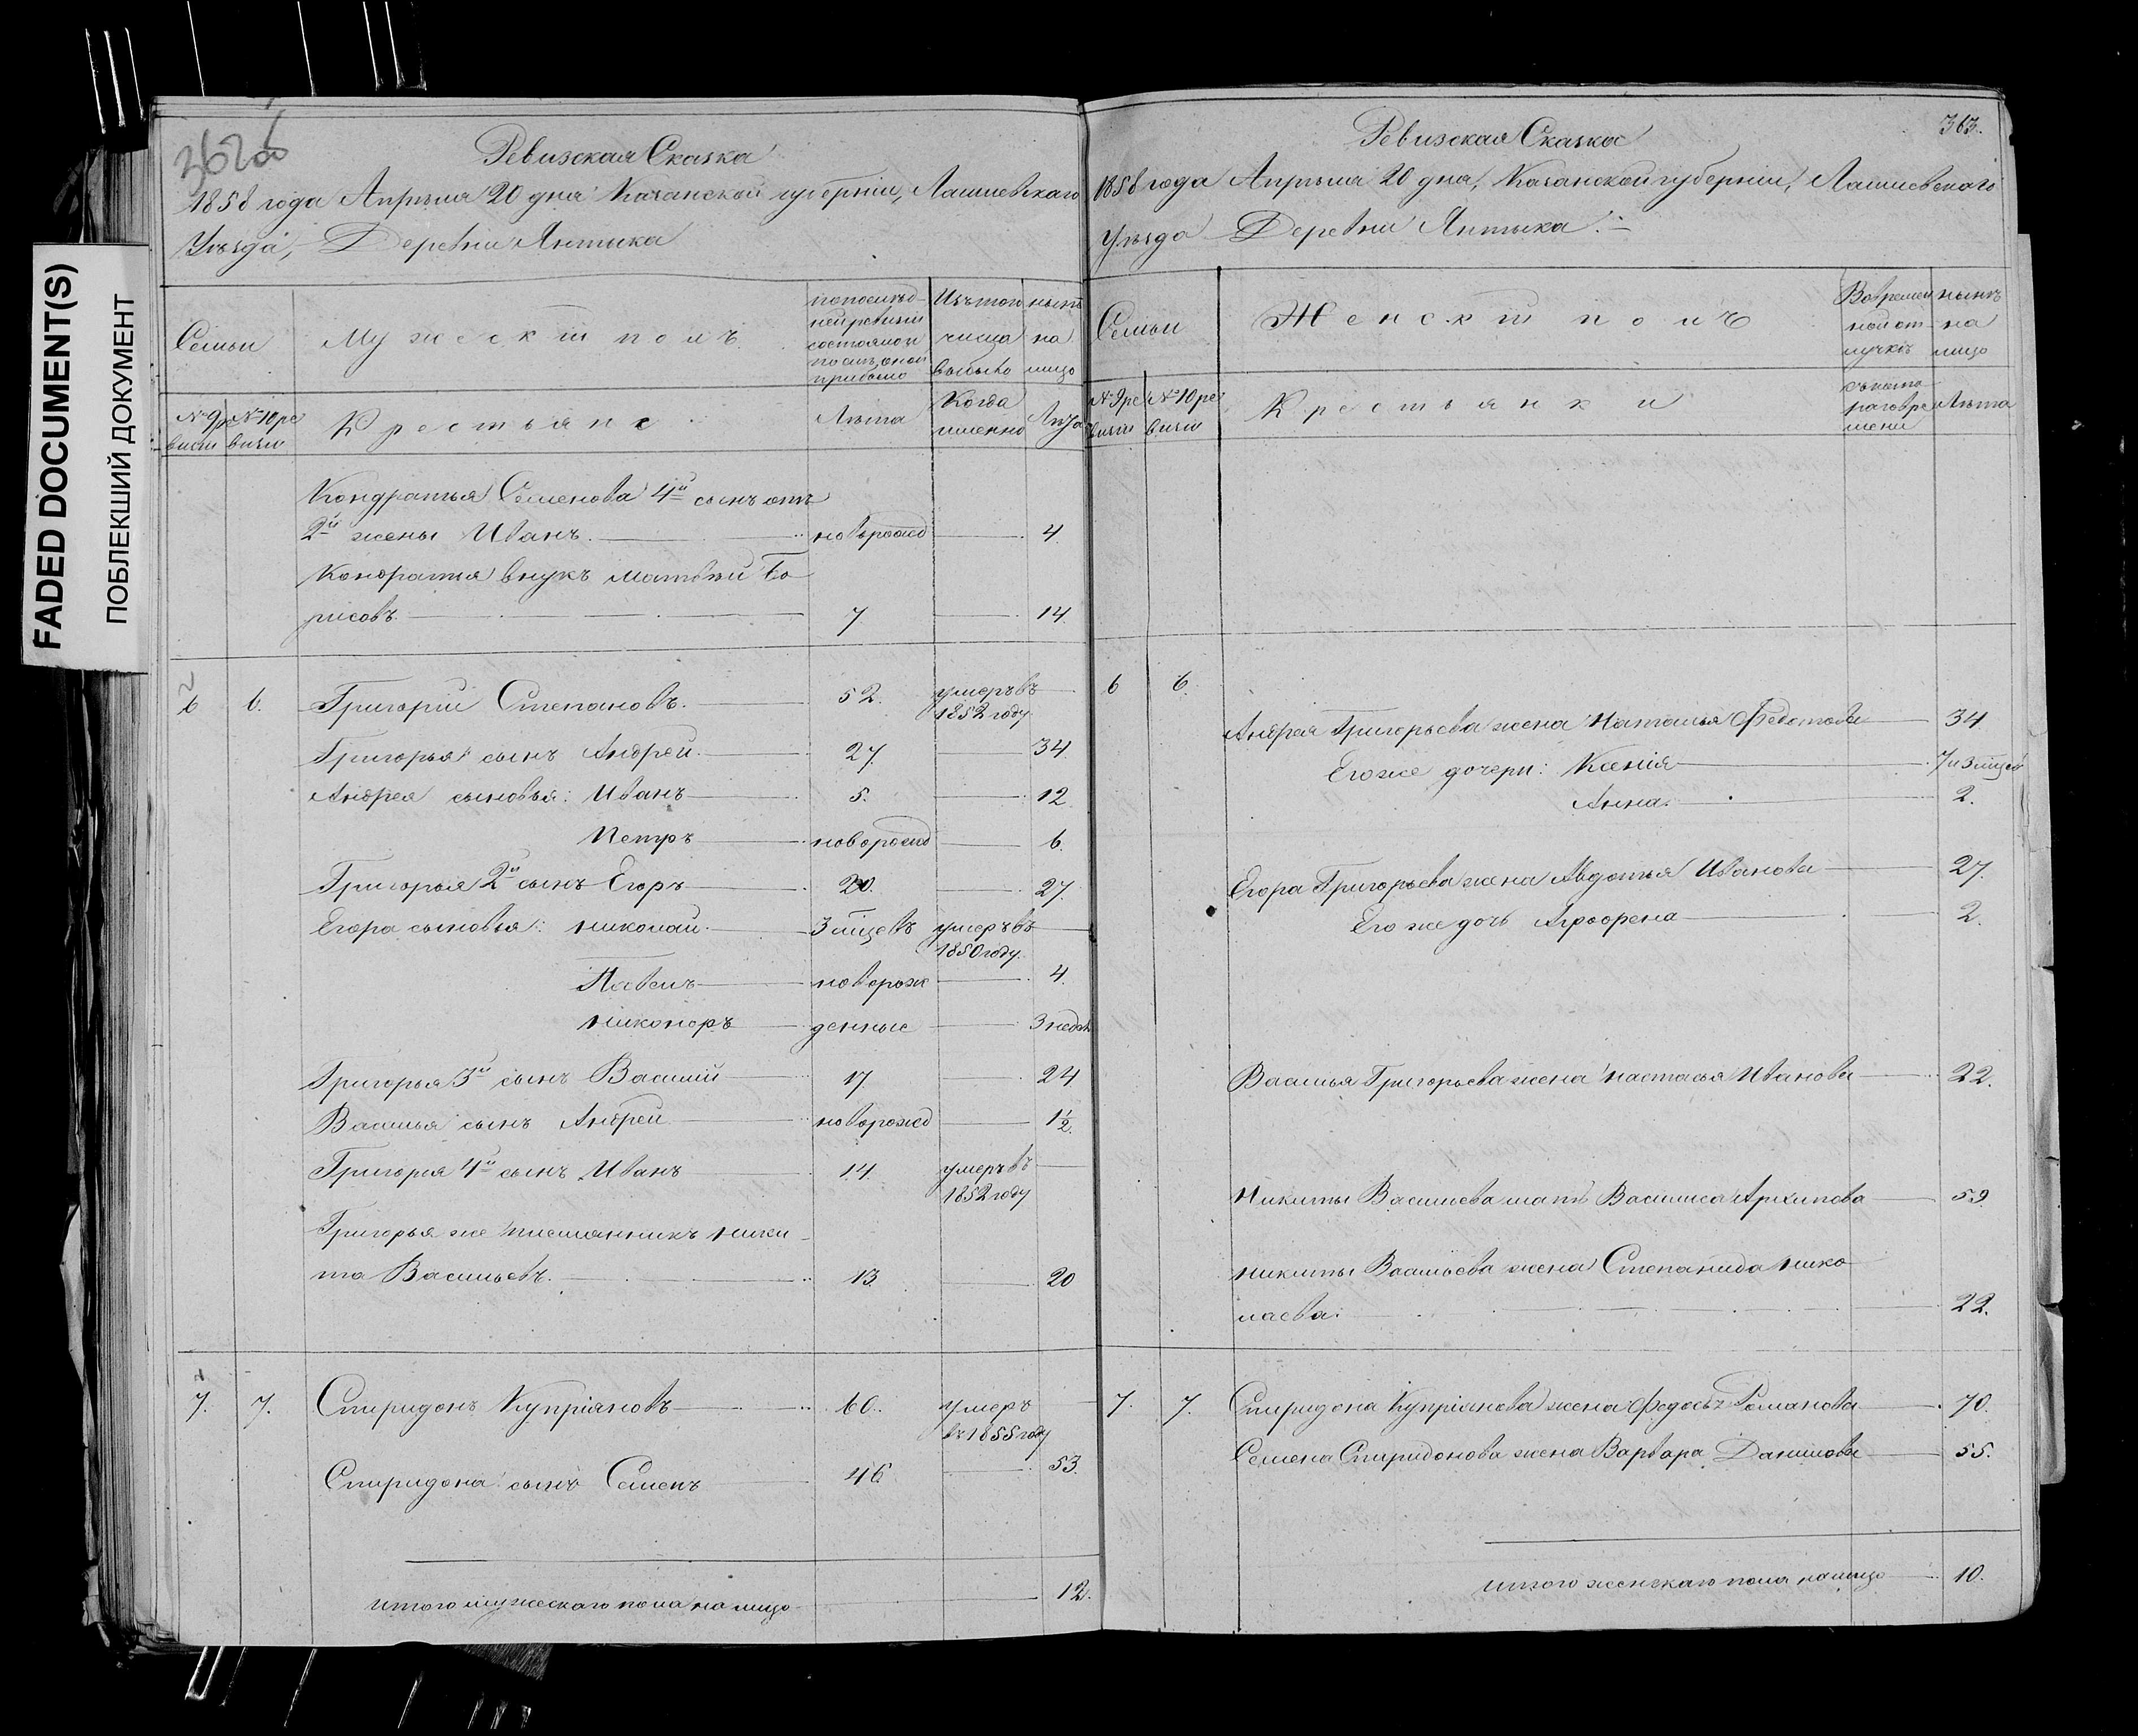 FADED DOCUMENT(S)
ПОБЛЕКШИЙ ДОКУМЕНТ
362об
Ревизская Сказка
1858 года Апрѣля 20 дня Казанской губерніи, Лаишевскаго
Уѣзда, Деревни Янтыка
Семьи
Мужескій полъ
по послѣд-
ней ревизіи
состояло и
послѣ оной
прибыло
Изъ того
числа
выбыло
нынѣ
на
лицо
№ 9 ре
визіи
№ 10 ре
визіи
Крестьяне
Лѣта
Когда
именно
Лѣта
Кондратья Семенова 4й сынъ отъ
2й жены Иванъ. новорожд 4.
Кондратья внукъ Матвѣй Бо
рисовъ. 7 14.
6 6. Григорій Степановъ. 52. умеръ въ
1852 году
Григорья сынъ Андрей. 27. 34.
Андрея сыновья: Иванъ 5. 12.
Петръ новорожд 6.
Григорья 2й сынъ Егоръ 20. 27.
Егора сыновья: Николай. 3 мцевъ умеръ въ
1850 году.
Павелъ новорож 4.
Никоноръ денные 3 недѣ
Григорья 3й сынъ Василій 17 24
Василья сынъ Андрей новорожд 1½.
Григорья 4й сынъ Иванъ 14. умеръ въ
1852 году
Григорья же племянникъ Ники
та Васильевъ. 13. 20
7. 7. Спиридонъ Купріяновъ 60. умеръ
въ 1855 году
Спиридона сынъ Семенъ 46. 53.
итого мужескаго пола на лицо 12.
363.
Ревизская Сказка
1858 года Апрѣля 20 дня, Казанской губерніи, Лаишевскаго
Уѣзда Деревни Янтыка.
Семьи
Женскій полъ
Во времен
ной от
лучкѣ
нынѣ
на
лицо
№ 9 ре
визіи
№ 10 ре
визіи
Крестьянки
съ кото
раго вре
мени
Лѣта
6 6.
Андрея Григорьева жена Наталья Федотова 34.
Его же дочери: Ксенія 7 и 3 мцев
Анна. 2.
Егора Григорьева жена Авдотья Иванова 27.
Его же дочь Агрофена 2.
Василья Григорьева жена Настасья Иванова 22.
Никиты Васильева мать Василиса Архипова 59.
Никиты Васильева жена Степанида Нико
лаева. 22.
7. 7. Спиридона Купріянова жена Федосья Романова 70.
Семена Спиридонова жена Варвара Данилова 55.
итого женскаго пола на лицо 10.